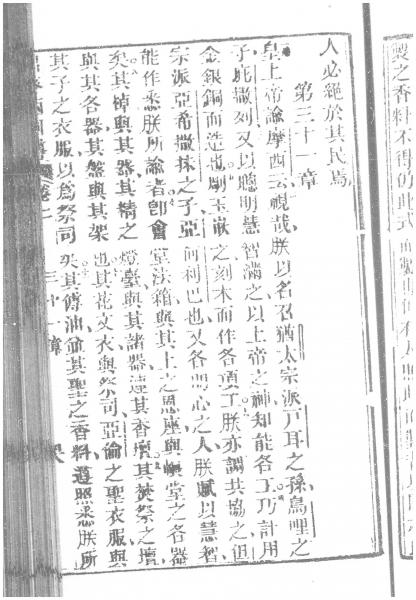 製之香料不得仿此式
人必絕於其民焉
第三十一章
皇上帝諭摩西云視哉朕以名召猶太宗派戶耳之孫烏哩之
子庇撒列又以聰明慧智滿之以上帝之神知能各工巧計用
金銀銅而造也刷玉嵌之刻木而作各項工朕亦調共協之但
宗派亞希撒抹之子亞何利巴也又各心之人朕賦以慧智
能作悉朕所諭者卽會堂法箱與其上之恩座與幔堂之各器
矣其棹與其器其精之燈臺與其諸器連其香壇其焚祭之壇
與其各器其盤與其架也其花文衣與祭司亞倫之聖衣服與
其子之衣服以爲祭司矣其傅油並其聖之香料遵照悉朕所
三十一章